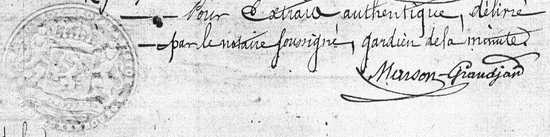 — Pour Extrait authentique, délivré
— par le notaire soussigné, gardien de la minute.
Marson-Grandjean